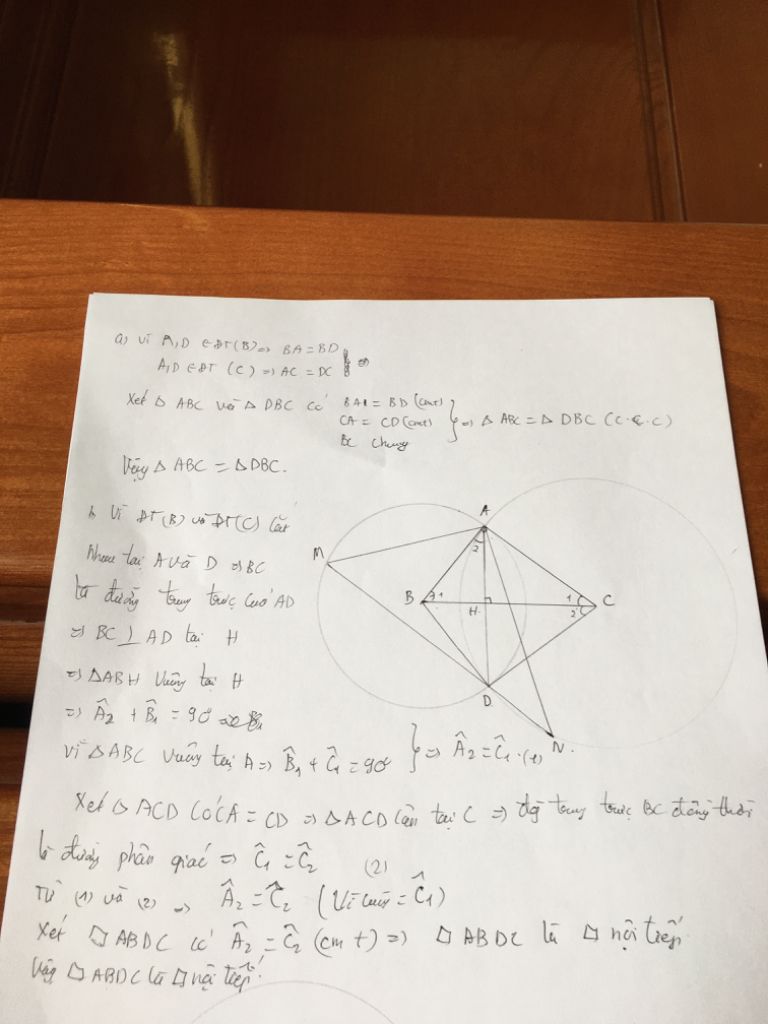 a) Vì A,D ∈ ĐT(B) ⇒ BA = BD
A,D ∈ ĐT (C) ⇒ AC = DC
Xét △ ABC và △ DBC có BA = BD (cmt)
CA = CD (cmt) ⇒ △ ABC = △ DBC (c.c.c)
BC chung
Vậy △ ABC = △DBC.
b, Vì ĐT(B) và ĐT(C) cắt
nhau tại A và D ⇒ BC
là đường trung trực của AD
⇒ BC ⊥ AD tại H
⇒ △ABH vuông tại H
⇒ Â2 + B̂1 = 90°
vì △ABC vuông tại A ⇒ B̂1 + Ĉ1 = 90° } ⇒ Â2 = Ĉ1 (1)
A
M
2
B
1
H
1
2
C
D
N
Xét △ ACD có CA = CD ⇒ △ACD cân tại C ⇒ đg trung trực BC đồng thời
là đường phân giác ⇒ Ĉ1 = Ĉ2 (2)
Từ (1) và (2) ⇒ Â2 = Ĉ2 (Vì cùng = Ĉ1)
Xét ▱ ABDC có Â2 = Ĉ2 (cmt) ⇒ ▱ ABDC là ▱ nội tiếp
Vậy ▱ ABDC là ▱ nội tiếp.